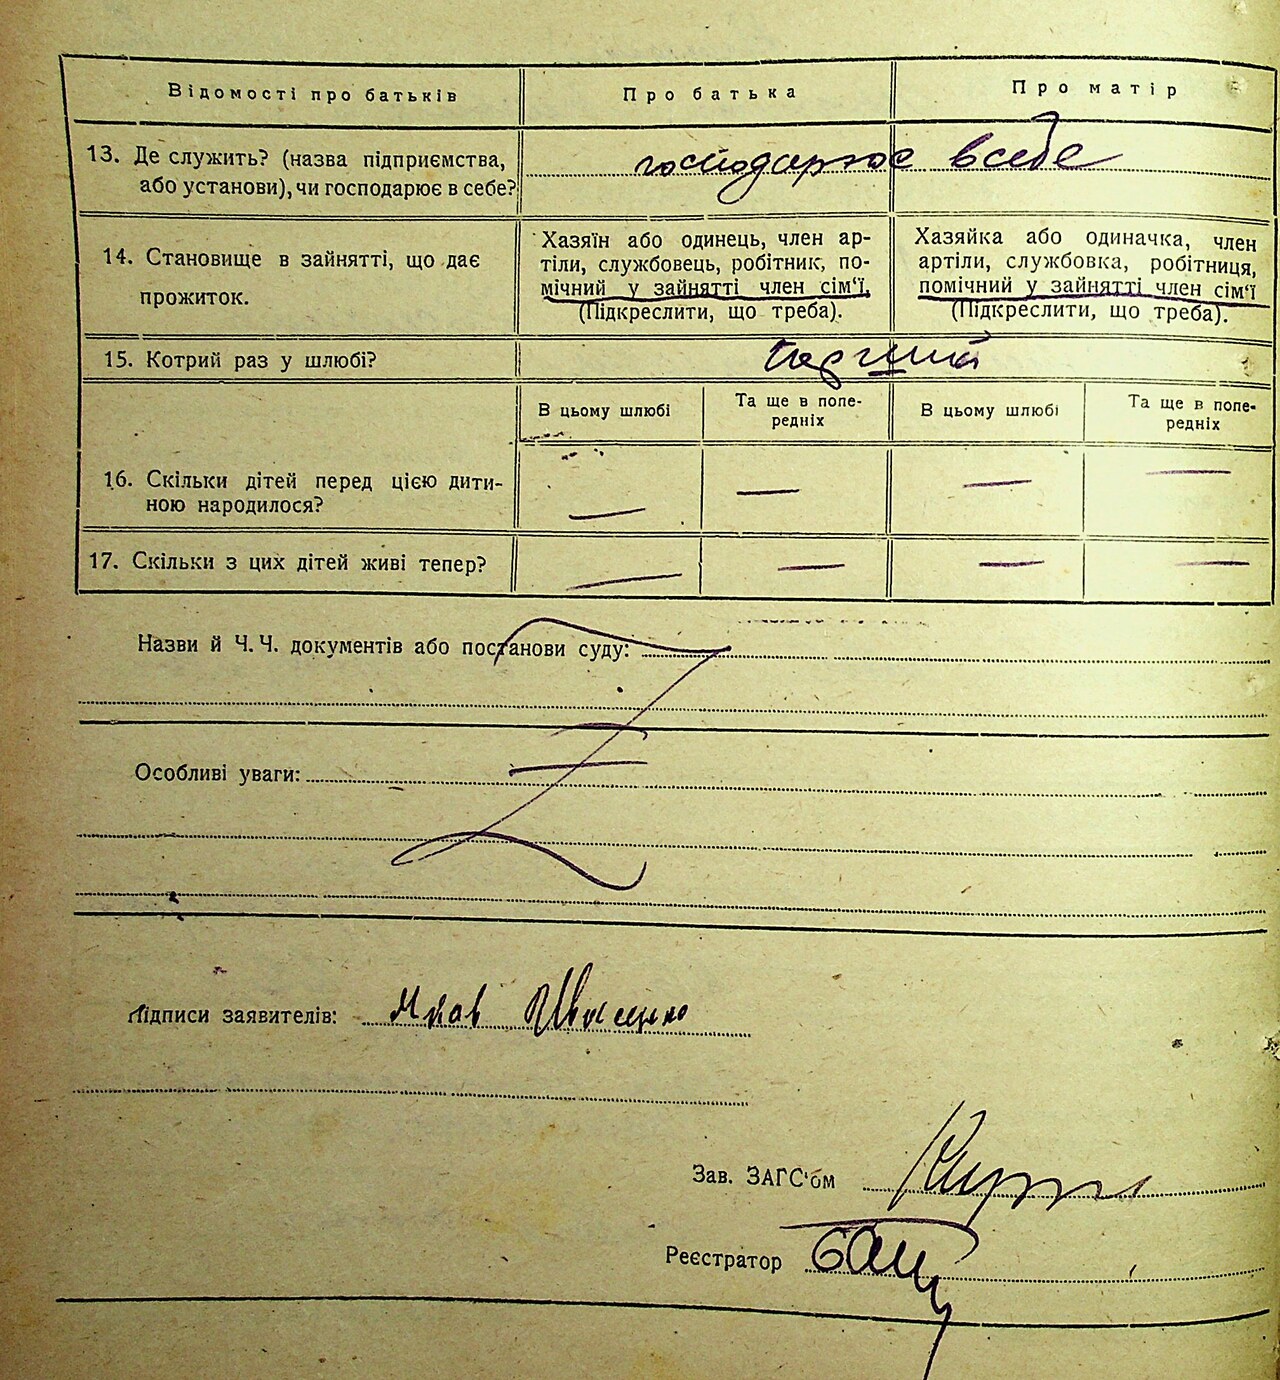 Відомості про батьків Про батька Про матір
13. Де служить? (назва підприємства, господарює в себе
або установи), чи господарює в себе?
14. Становище в зайнятті, що дає
прожиток.
Хазяїн або одинець, член ар-
тіли, службовець, робітник, по-
мічний у зайнятті член сім'ї.
(Підкреслити, що треба).
Хазяйка або одиначка, член
артіли, службовка, робітниця,
помічний у зайнятті член сім'ї
(Підкреслити, що треба).
15. Котрий раз у шлюбі? перший
В цьому шлюбі Та ще в попе-
редніх
В цьому шлюбі Та ще в попе-
редніх
16. Скільки дітей перед цією дити-
ною народилося? — — — —
17. Скільки з цих дітей живі тепер? — — — —
Назви й Ч.Ч. документів або постанови суду:
Особливі уваги:
Підписи заявителів:
Зав. ЗАГС'ом
Реєстратор